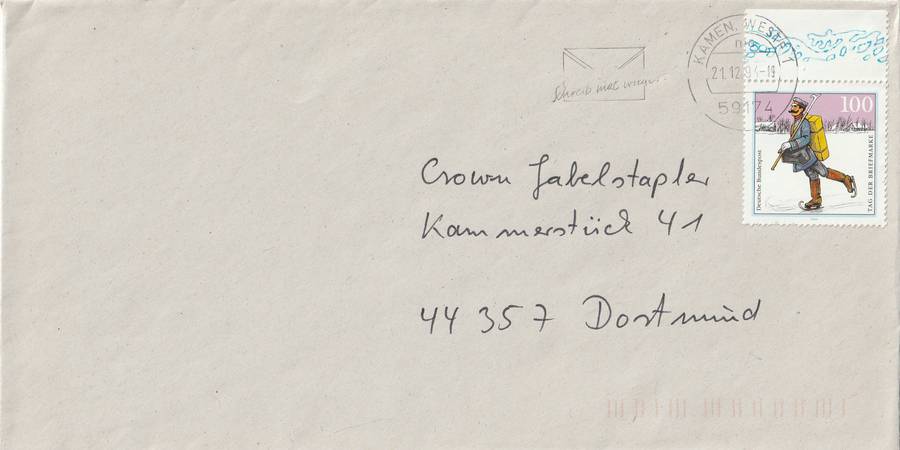 KAMEN, WESTF 1
21.12.94-19
59174
Schreib mal wieder
100
Deutsche Bundespost
TAG DER BRIEFMARKE
Crown Gabelstapler
Kammerstück 41
44 357 Dortmund